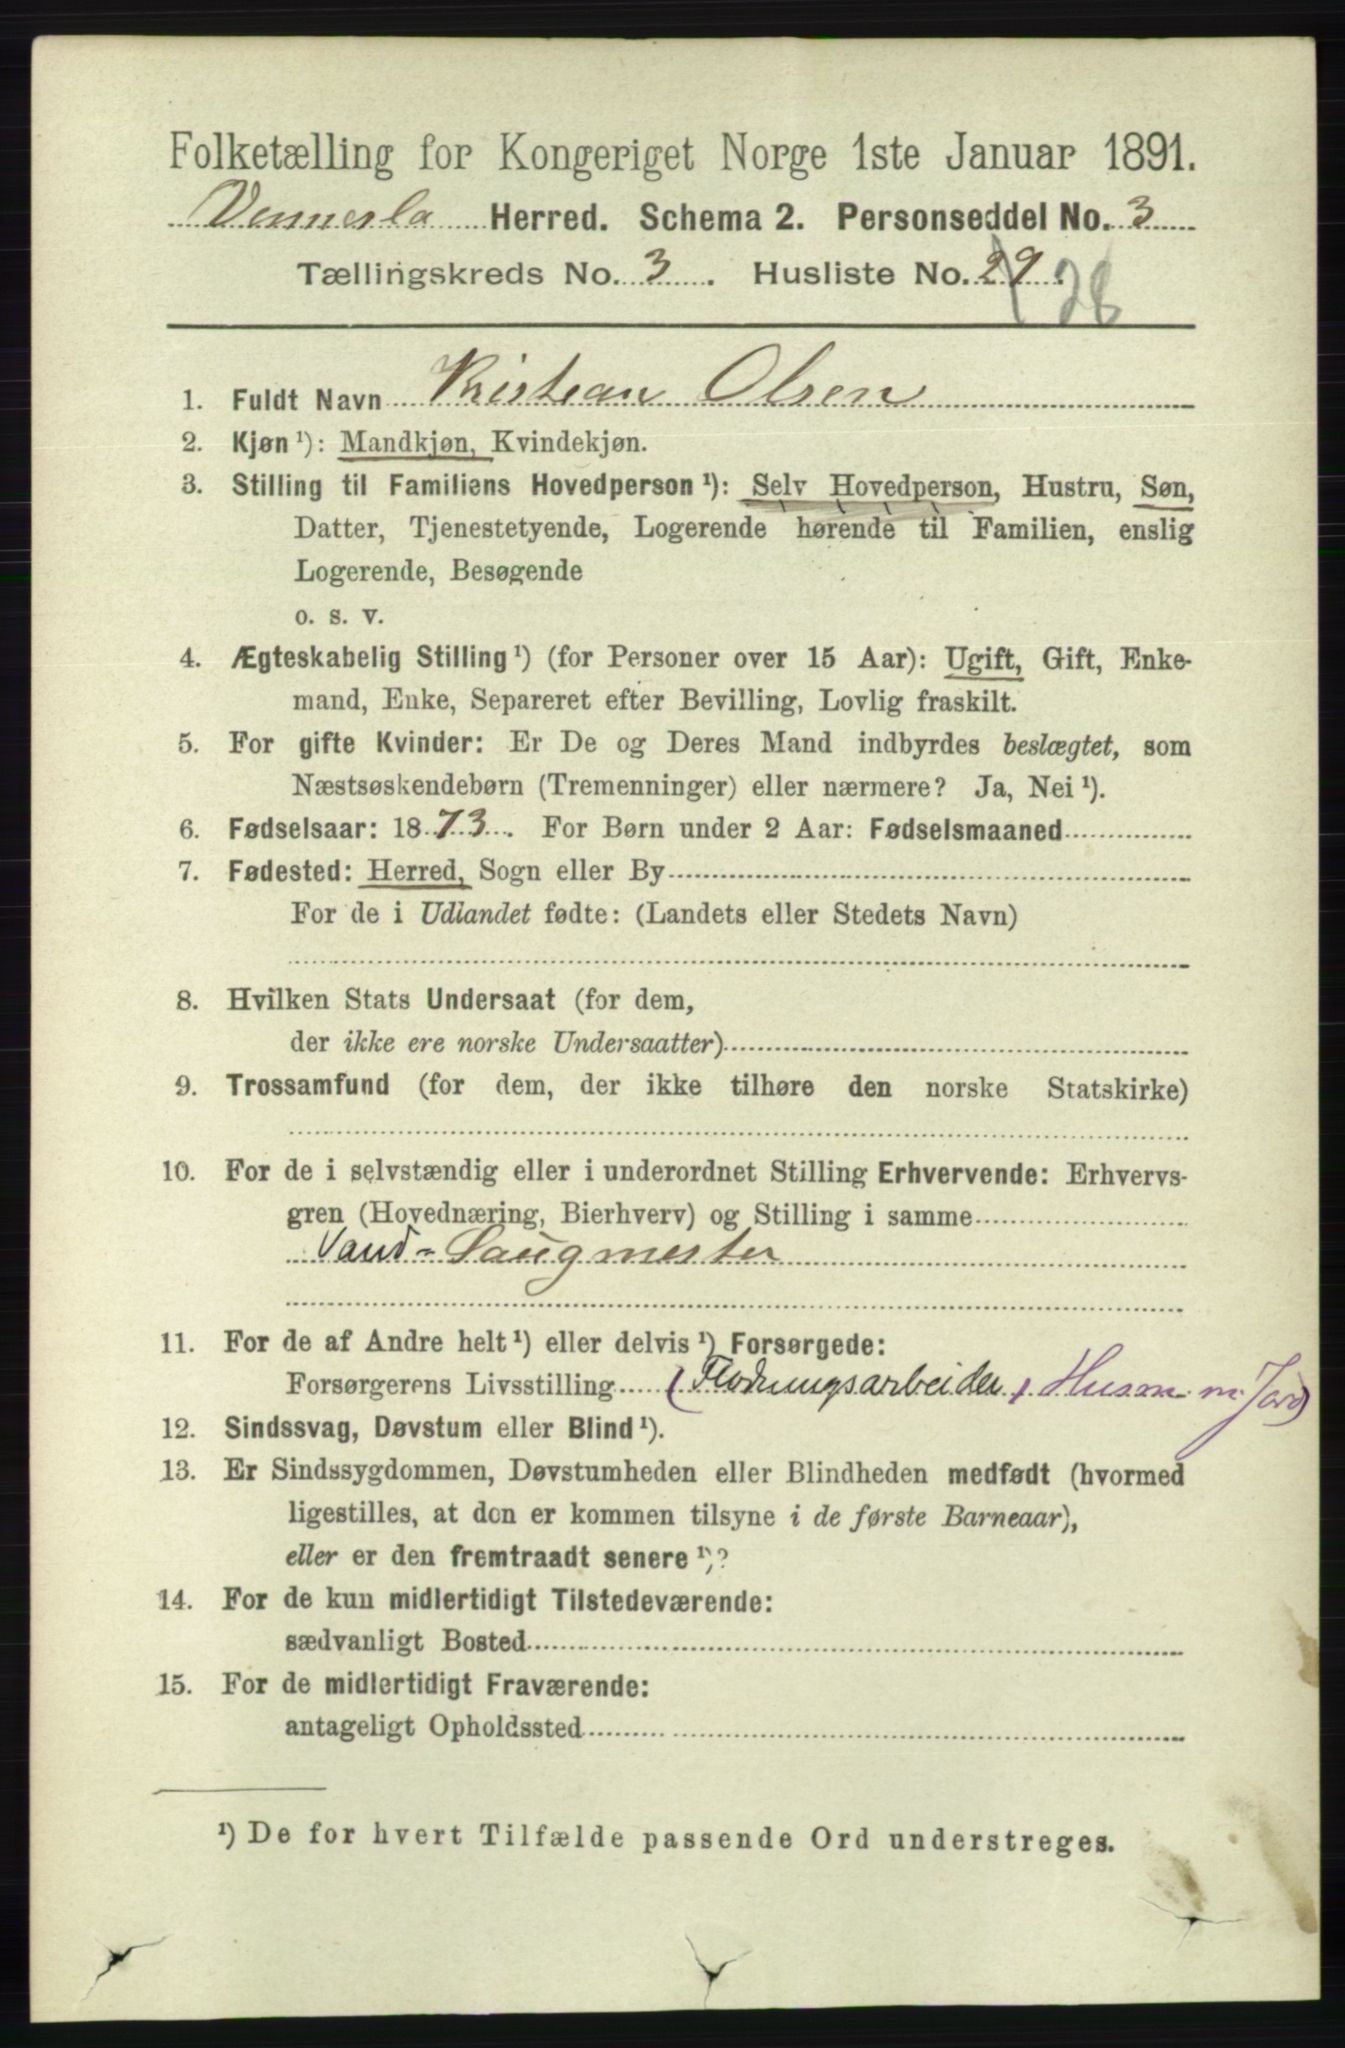 Folketælling for Kongeriget Norge 1ste Januar 1891.
Vennesla Herred. Schema 2. Personseddel No. 3
Tællingskreds No. 3. Husliste No. 29. 28
1. Fuldt Navn Kristian Olsen
2. Kjøn ¹): Mandkjøn, Kvindekjøn.
3. Stilling til Familiens Hovedperson ¹): Selv Hovedperson, Hustru, Søn,
Datter, Tjenestetyende, Logerende hørende til Familien, enslig
Logerende, Besøgende
o. s. v.
4. Ægteskabelig Stilling ¹) (for Personer over 15 Aar): Ugift, Gift, Enke-
mand, Enke, Separeret efter Bevilling, Lovlig fraskilt.
5. For gifte Kvinder: Er De og Deres Mand indbyrdes beslægtet, som
Næstsøskendebørn (Tremenninger) eller nærmere? Ja, Nei ¹).
6. Fødselsaar: 1873. For Børn under 2 Aar: Fødselsmaaned
7. Fødested: Herred, Sogn eller By
For de i Udlandet fødte: (Landets eller Stedets Navn)
8. Hvilken Stats Undersaat (for dem,
der ikke ere norske Undersaatter)
9. Trossamfund (for dem, der ikke tilhøre den norske Statskirke)
10. For de i selvstændig eller i underordnet Stilling Erhvervende: Erhvervs-
gren (Hovednæring, Bierhverv) og Stilling i samme
Vand-Saugmester
11. For de af Andre helt ¹) eller delvis ¹) Forsørgede:
Forsørgerens Livsstilling (Flødningsarbeider, Husm. m. Jord)
12. Sindssvag, Døvstum eller Blind ¹).
13. Er Sindssygdommen, Døvstumheden eller Blindheden medfødt (hvormed
ligestilles, at den er kommen tilsyne i de første Barneaar),
eller er den fremtraadt senere ¹)?
14. For de kun midlertidigt Tilstedeværende:
sædvanligt Bosted
15. For de midlertidigt Fraværende:
antageligt Opholdssted
¹) De for hvert Tilfælde passende Ord understreges.